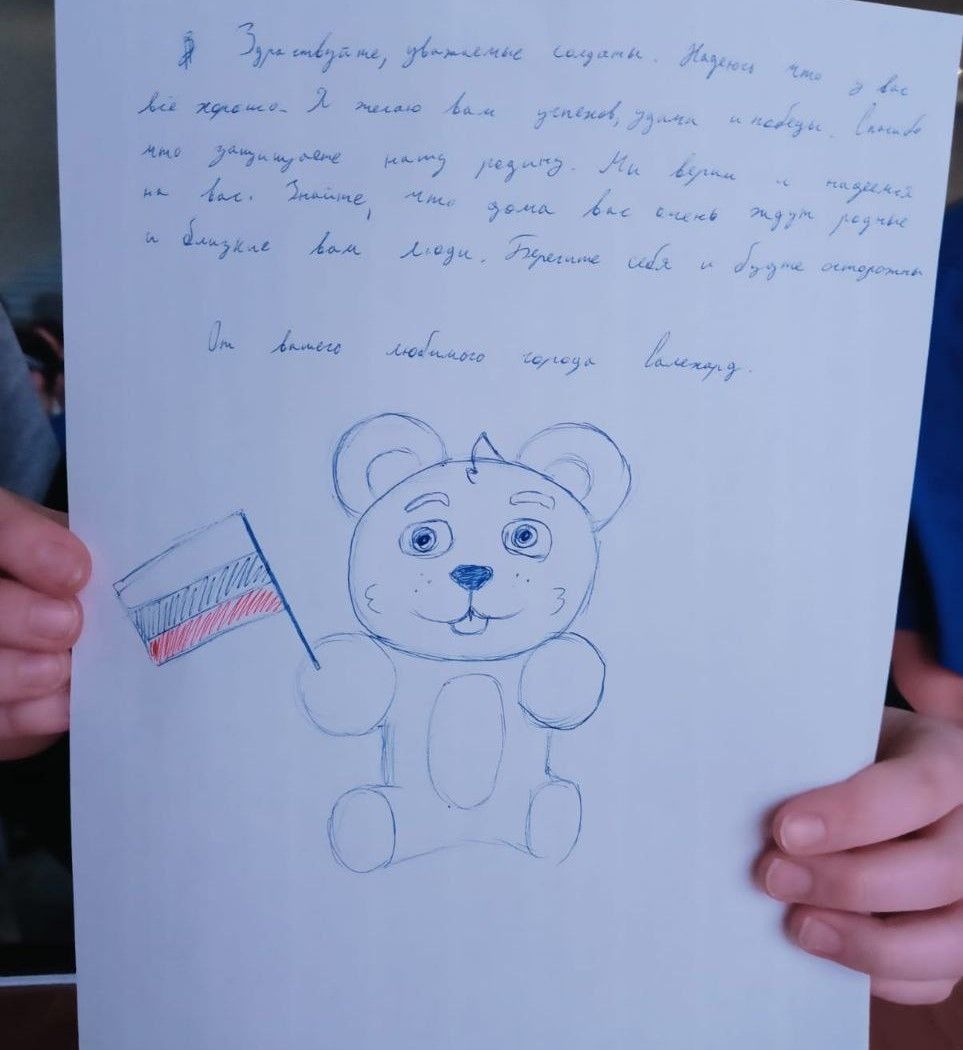 Здравствуйте, уважаемые солдаты. Надеюсь что у вас
всё хорошо. Я желаю вам успехов, удачи и победы. Спасибо
что защищаете нашу родину. Мы верим и надеемся
на вас. Знайте, что дома вас очень ждут родные
и близкие вам люди. Берегите себя и будте осторожны
От вашего любимого города Салехард.